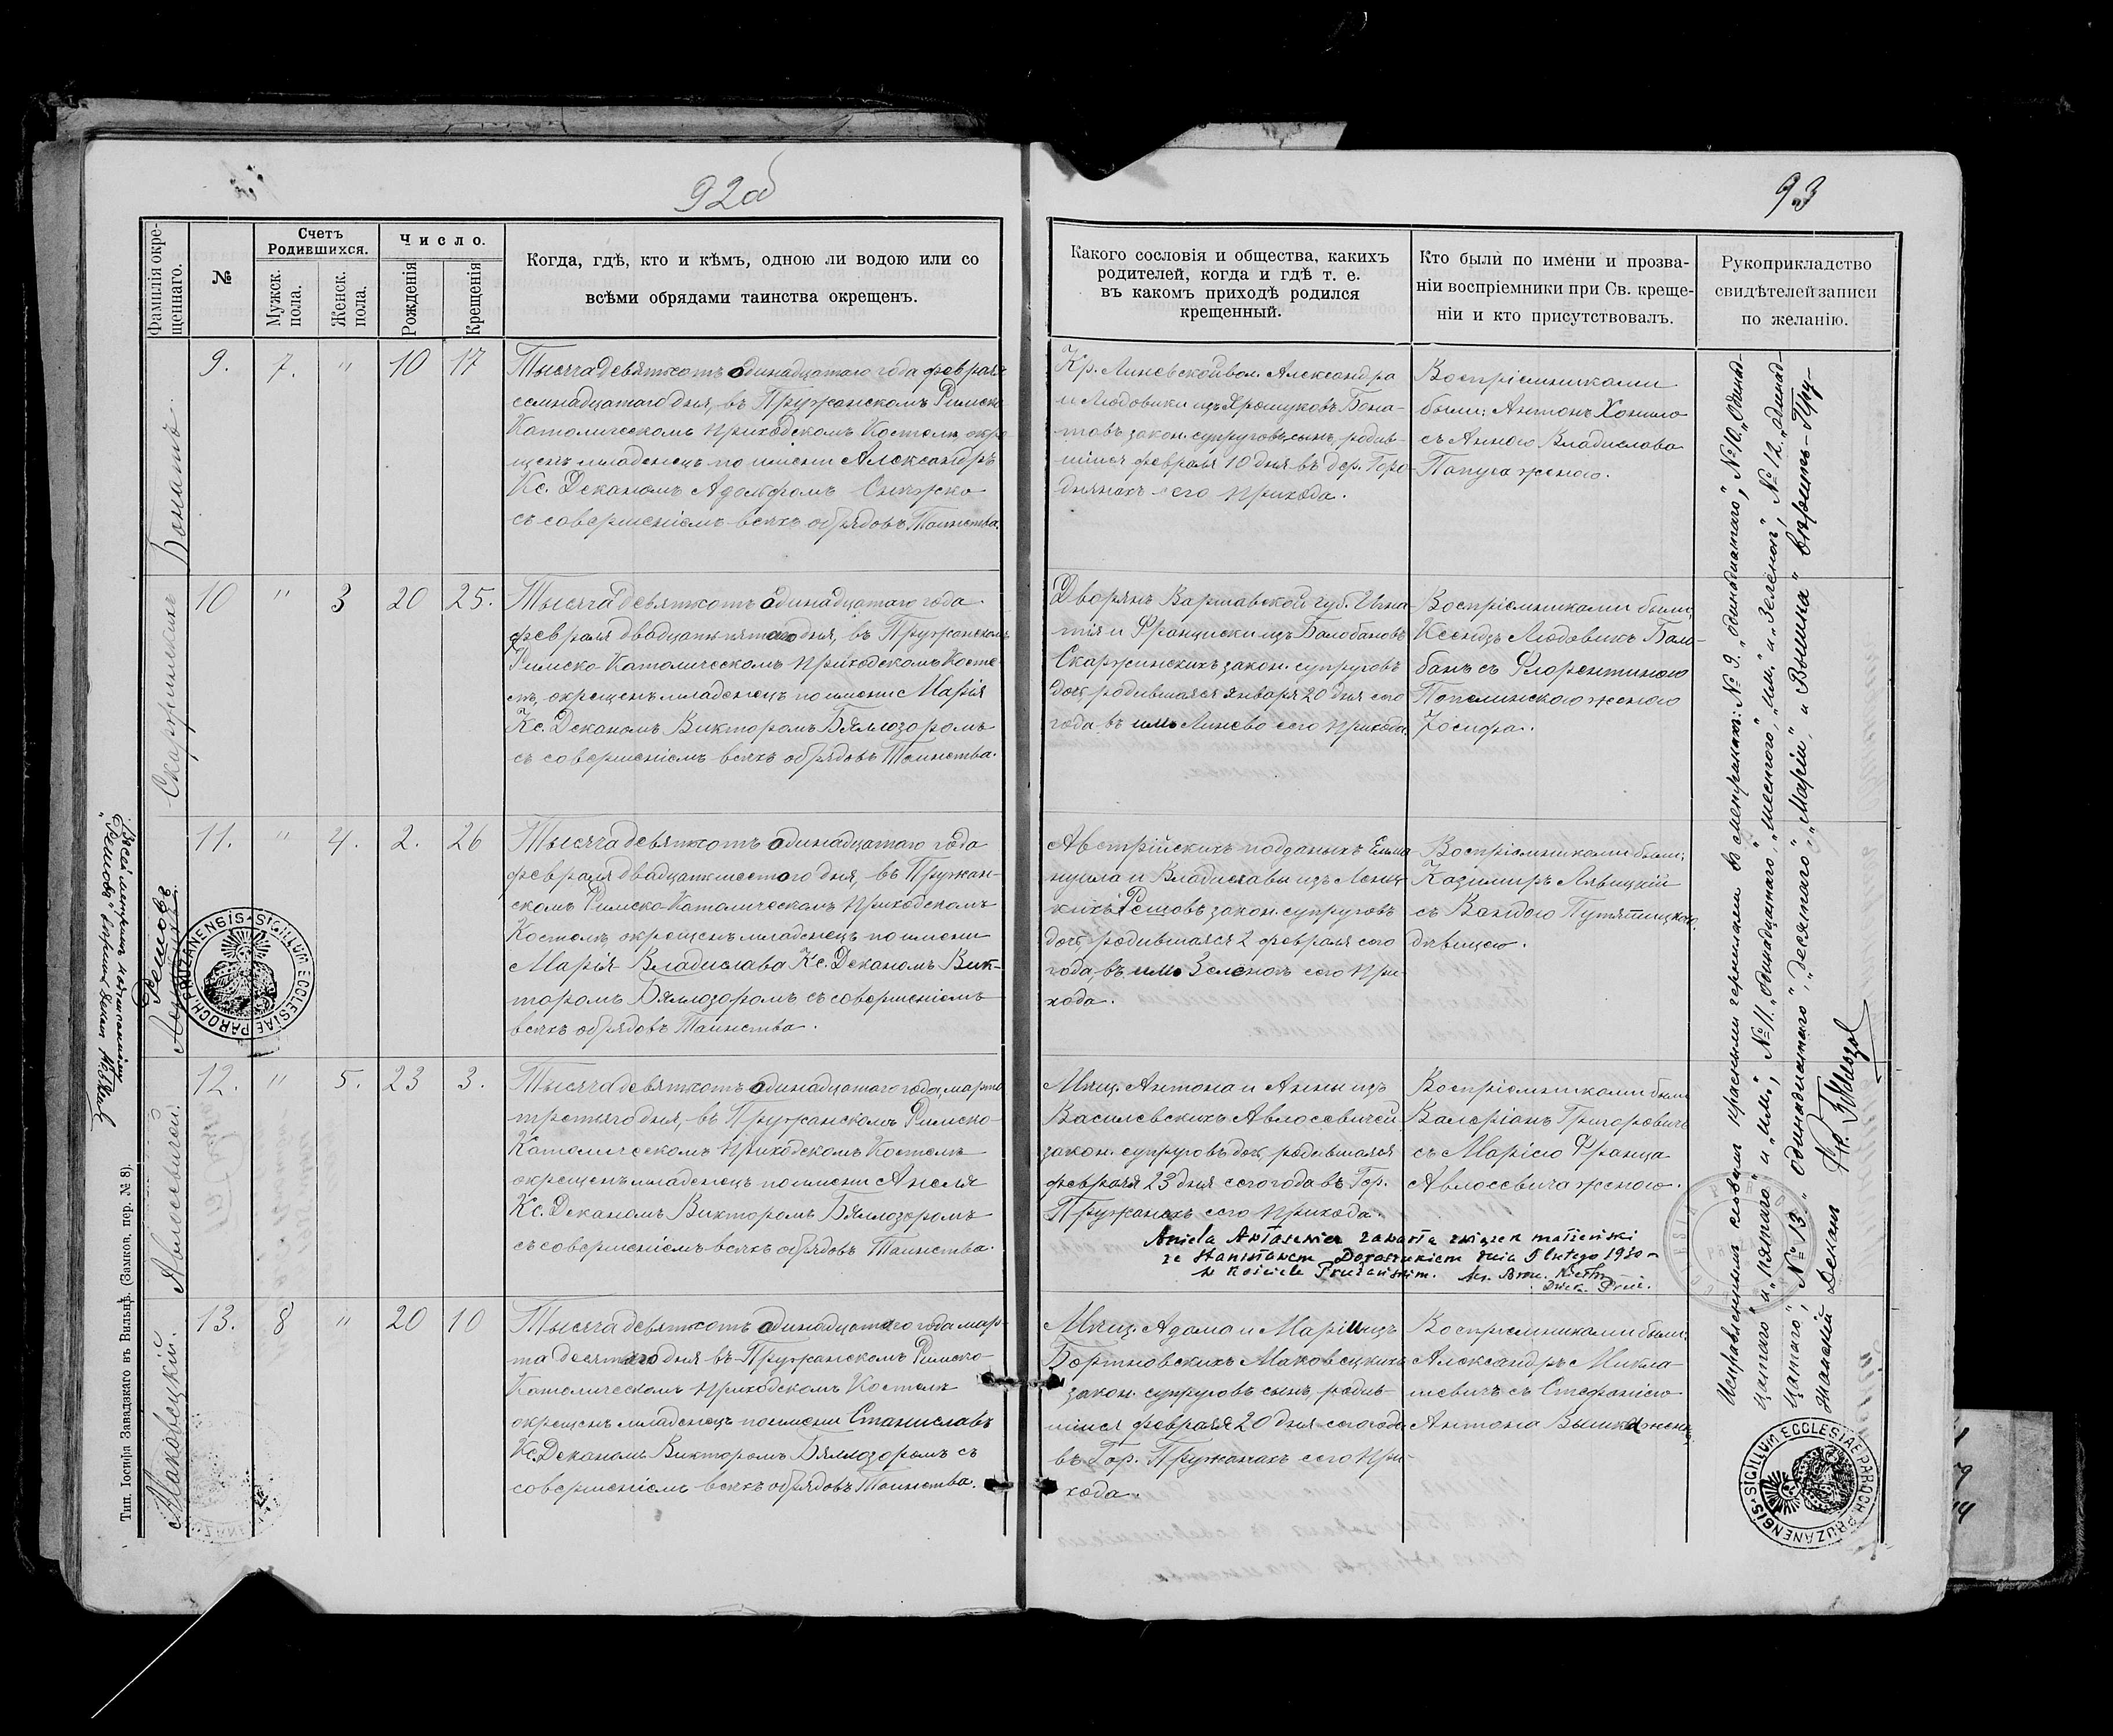 92об
93
Фамилія окре-
щеннаго.
№
Счетъ
Родившихся.
Мужск.
пола.
Женск.
пола.
Число.
Рожденія
Крещенія
Когда, гдѣ, кто и кѣмъ, одною ли водою или со
всѣми обрядами таинства окрещенъ.
Какого сословія и общества, какихъ
родителей, когда и гдѣ т. е.
въ какомъ приходѣ родился
крещенный.
Кто были по имени и прозва-
ніи воспріемники при Св. креще-
ніи и кто присутствовалъ.
Рукоприкладство
свидѣтелей записи
по желанію.
Бонатъ.
9. 7. " 10 17
Тысяча девятьсотъ одинадцатаго года февраля
семнадцатаго дня, въ Пружанскомъ Римско
Католическомъ приходскомъ Костелѣ, окре-
щенъ младенецъ по имени Александръ
Кс. Деканомъ Адольфомъ
съ совершеніемъ всѣхъ обрядовъ Таинства.
Кр. Линевской вол. Александра
и Людовики изъ Ярошуковъ Бона-
товъ закон. супруговъ сынъ, родив-
шійся февраля 10 дня въ дер. Горо-
днянахъ сего прихода.
Воспріемниками
были: Антонъ Хомило
съ Анною Владислава
Папуга женою.
Скаржинскихъ
10 " 3 20 25.
Тысяча девятьсотъ одинадцатаго года
февраля двадцать пятаго дня, въ Пружанскомъ
Римско-Католическомъ приходскомъ Косте-
лѣ, окрещенъ младенецъ по имени Марія
Кс. Деканомъ Викторомъ Бяллозоромъ
съ совершеніемъ всѣхъ обрядовъ Таинства.
Дворянъ Варшавской губ. Игна-
тія и Франциски изъ Балобановъ
Скаржинскихъ закон. супруговъ
дочь, родившаяся января 20 дня сего
года въ им. Линево сего прихода.
Воспріемниками были:
Ксендзъ Людовикъ Бало-
банъ съ Флорентиною
Попелинскою женою
Іосифа.
Решовъ
11. " 4. 2. 26
Тысяча девятьсотъ одинадцатаго года
февраля двадцать шестого дня, въ Пружан-
скомъ Римско-Католическомъ приходскомъ
Костелѣ, окрещенъ младенецъ по имени
Марія-Владислава Кс. Деканомъ Вик-
торомъ Бяллозоромъ съ совершеніемъ
всѣхъ обрядовъ Таинства.
Австрійскихъ подданыхъ Емма-
нуила и Владиславы изъ Лениц-
кихъ Решовъ закон. супруговъ
дочь, родившаяся 2 февраля сего
года, въ им. Зеленой сего при-
хода.
Воспріемниками были:
Казимиръ Лявицкій
съ Вандою Путятицкою
дѣвицею.
SIGILLUM ECCLESIAE PAROCH. PRUZANENSIS
Авлосевичей.
12. " 5. 23 3.
Тысяча девятьсотъ одинадцатаго года, марта
третьяго дня, въ Пружанскомъ Римско-
Католическомъ приходскомъ Костелѣ
окрещенъ младенецъ по имени Анеля
Кс. Деканомъ Викторомъ Бяллозоромъ
съ совершеніемъ всѣхъ обрядовъ Таинства.
Мѣщ. Антона и Анны изъ
Василевскихъ Авлосевичей
закон. супруговъ дочь, родившаяся
февраля 23 дня сего года въ Гор.
Пружанахъ сего прихода.
Воспріемниками были
Валеріанъ Григоровичъ
съ Маріею Франца
Авлосевича женою.
zawarła związek małżeński
ze Stanisławem dnia 5 lutego 1930
w Kościele Prużańskim.
Маковецкій.
13. 8 " 20 10
Тысяча девятьсотъ одинадцатаго года мар-
та десятаго дня въ Пружанскомъ Римско-
Католическомъ приходскомъ Костелѣ
окрещенъ младенецъ по имени Станиславъ
Кс. Деканомъ Викторомъ Бяллозоромъ съ
совершеніемъ всѣхъ обрядовъ Таинства.
Мѣщ. Адама и Маріи изъ
Бортновскихъ Маковецкихъ
закон. супруговъ сынъ, родив-
шійся февраля 20 дня сего года
въ Гор. Пружанахъ сего при-
хода.
Воспріемниками были:
Александръ Микла-
шевичъ съ Стефаніею
Антона Вышка женою.
Исправленнымъ словамъ красными чернилами въ метрикахъ: № 9. „одинадцатаго", № 10. „Одинад-
цатаго" и „пятаго" и „им."; № 11. „одинадцатаго", „шестого", „им." и „Зеленой"; № 12. „одинад-
цатаго", № 13. „одинадцатаго", „десятаго", „Маріи", и „Вышка" вѣрить-Пру-
жанскій Деканъ
SIGILLUM ECCLESIAE PAROCH. PRUZANENSIS
Тип. Іосифа Завадзкаго въ Вильнѣ. (Замков. пер. № 8).